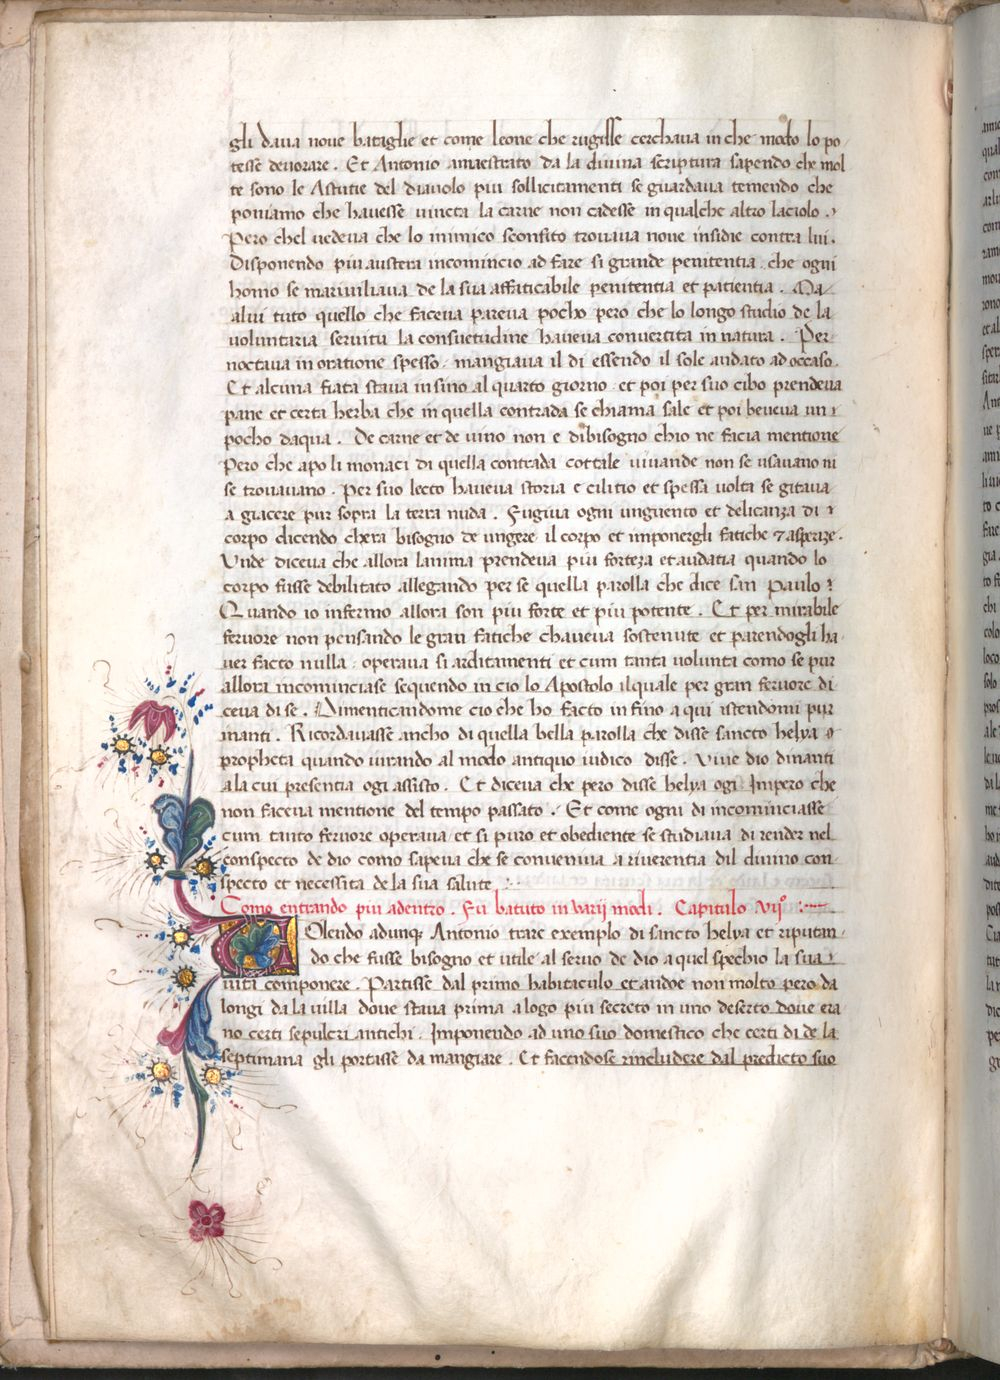 gli dava nove bataglie et come leone che rugisse cerchava in che modo lo po
tesse devorare . Et Antonio amaestrato da la divina scriptura sapendo che mol
te sono le Astutie del diavolo piu sollicitamenti se guardava temendo che
poniamo che havesse vincta la carne non cadesse in qualche altro laciolo .
Pero chel vedeva che lo inimico sconfito trovava nove insidie contra lui .
Disponendo piu austera incomincio ad fare si grande penitentia . che ogni
homo se maraviliava de la sua affiticabile penitentia et patientia . Ma
alui tuto quello che faceva pareva pocho pero che lo longo studio de la
voluntaria servitu la consuetudine haveva convertita in natura . Per
noctava in oratione spesso . mangiava il di essendo il sole andato ad occaso .
Et alcuna fiata stava in sino al quarto giorno . et poi per suo cibo prendeva
pane et certa herba che in quella contrada se chiama sale et poi beveva un
pocho daqua . De carne et de vino non e dibisogno chio ne facia mentione
Pero che apo li monaci di quella contrada cottale vivande non se usavano ni
se trovavano . Per suo lecto haveva storia e cilitio et spessa volta se gitava
a giacere pur sopra la terra nuda . Fugiva ogni unguento et delicanza di
corpo dicendo chera bisogno de ungere il corpo et imponergli fatiche & asperize .
Unde diceva che allora lanima prendeva piu forteza et audatia quando lo
corpo fusse debilitato allegando per se quella parolla che dice san Paulo
Quando io infermo allora son piu forte et piu potente . Et per mirabile
fervore non pensando le gran fatiche chaveva sostenute et parendogli ha
ver facto nulla . operava si arditamenti et cum tanta volunta como se pur
allora incominciase sequendo in cio lo Apostolo il quale per gran fervore di
ceva di se . Dimenticandome cio che ho facto in fino a qui istendomi pur
inanti . Ricordavasse ancho di quella bella parolla che disse sancto helya
propheta quando iurando al modo antiquo iudico disse . Vive dio dinanti
a la cui presentia ogi assisto . Et diceva che pero disse helya ogi Impero che
non faceva mentione del tempo passato . Et come ogni di incominciasse
cum tanto fervore operava et si puro et obediente se studiava di render nel
conspecto de dio como sapeva che se conveniva a riverentia dil divino con
specto et necessita de la sua salute .
Como entrando piu adentro . Fu batuto in varij modi . Capitulo Vijo
Volendo adunq Antonio trare exemplo di sancto helya et riputan
do che fusse bisogno et utile al servo de dio a quel spechio la sua
vita componere . Partisse dal primo habitaculo et andoe non molto pero da
longi da la villa dove stava prima a logo piu secreto in uno deserto dove era
no certi sepulcri antichi . Imponendo ad uno suo domestico che certi di de la
septimana gli portasse da mangiare . Et facendose rincludere dal predicto suo